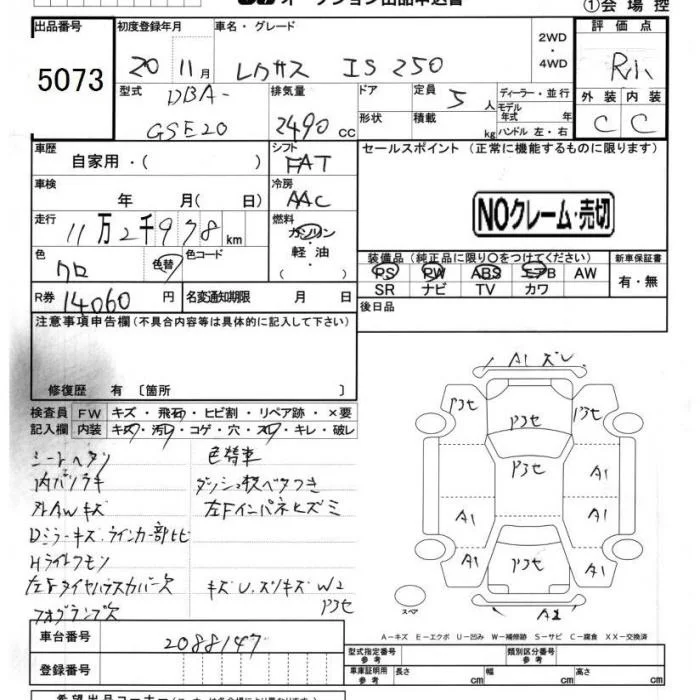 オークション出品申込書
①会場控
出品番号
5073
初度登録年月
20 11月
車名・グレード
レクサス IS 250
2WD
・
4WD
評価点
外装 内装
C C
型式
DBA-
GSE20
排気量
2490 cc
ドア
形状
定員
5人
積載
kg
ディーラー・並行
モデル
年式 年
ハンドル 左・右
車歴
自家用・( )
シフト
FAT
セールスポイント (正常に機能するものに限ります)
車検
年 月( 日)
冷房
AAC
NOクレーム・売切
走行
11万2千978km
燃料
ガソリン
・
軽油
・
( )
色
クロ
色替
色コード
装備品 (純正品に限り○をつけてください)
PS PW ABS エアB AW
SR ナビ TV カワ
新車保証書
有・無
R券 14060円
名変通知期限 月 日
後日品
注意事項申告欄(不具合内容等は具体的に記入して下さい)
修復歴 有 〔箇所 〕
検査員
記入欄
FW キズ・飛石・ヒビ割・リペア跡・×要
内装 キズ・汚レ・コゲ・穴・スレ・キレ・破レ
シートヘタリ 色替車
内バリラキ ダッシュ板ベタつき
外AWキズ 左Fインパネヒズミ
Dミラーキズ、ウインカー部ヒビ
Hライトクモリ
左FタイヤハウスカバーX欠 キズU、スリキズ W2
フォグランプ欠 アコセ
A1 キズU
アコセ アコセ アコセ
アコセ
A1
A1 A1
A1 アコセ A1
A2
スペア
A-キズ E-エクボ U-凹み W-補修跡 S-サビ C-腐食 XX-交換済
車台番号
2088147
登録番号
型式指定番号
参考
類別区分番号
参考
車庫証明用
参考
長さ cm
幅 cm
高さ cm
希望出品コーナー